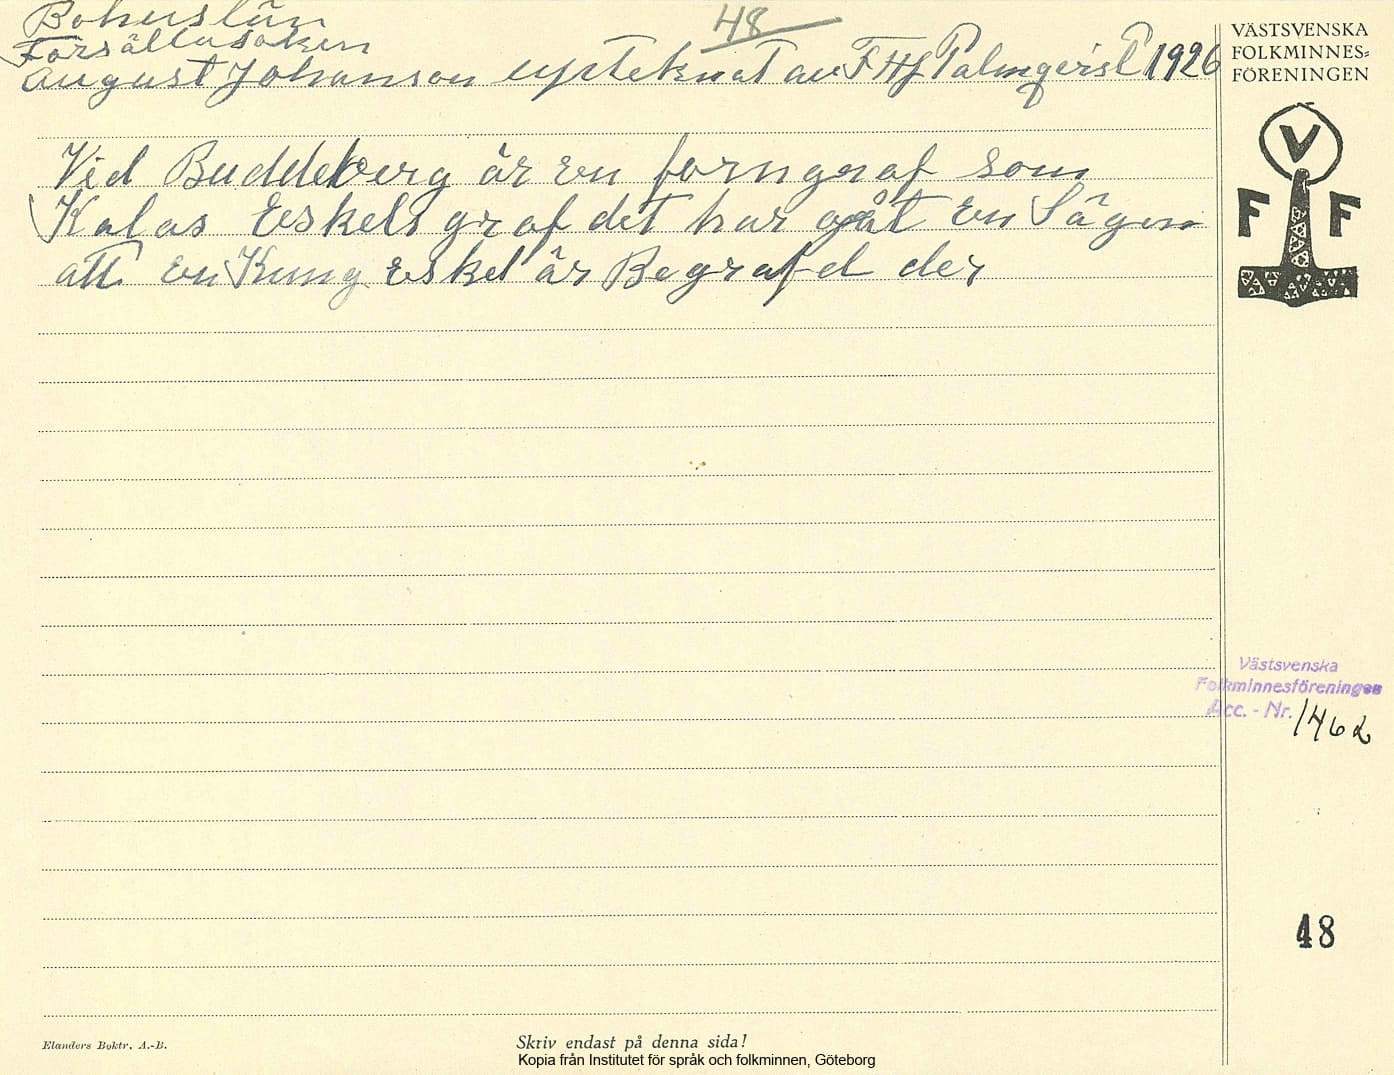 Bohuslän
48
Forsällasoken
August Johanson upteknat av F Hj Palmqvist 1926
Vid Buddeberg är en forngraf som
Kalas Eskels graf det har gått en Sägen
att en Kung Eskel är Begrafd der
VÄSTSVENSKA
FOLKMINNES=
FÖRENINGEN
V
F F
Västsvenska
Folkminnesföreningen
Acc. - Nr. 1462
48
Elanders Boktr. A.-B.
Skriv endast på denna sida!
Kopia från Institutet för språk och folkminnen, Göteborg